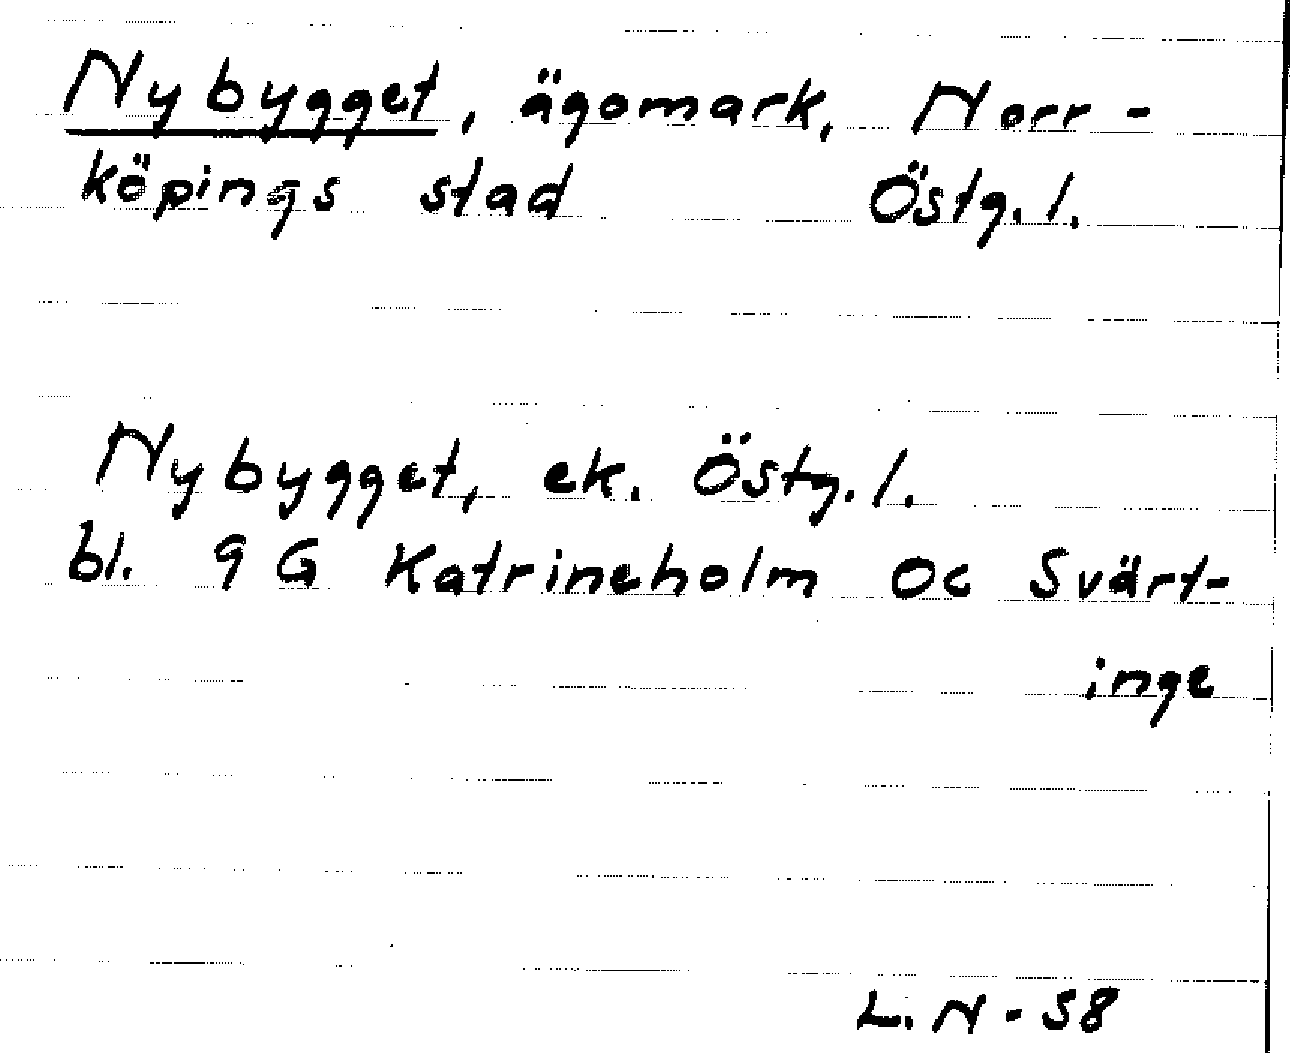 Nybygget, ägomark, Norr-
köpings stad Östg. l.
Nybygget, ek. Östg. l.
bl. 9 G Katrineholm Oc Svärt-
inge
L. N - 58